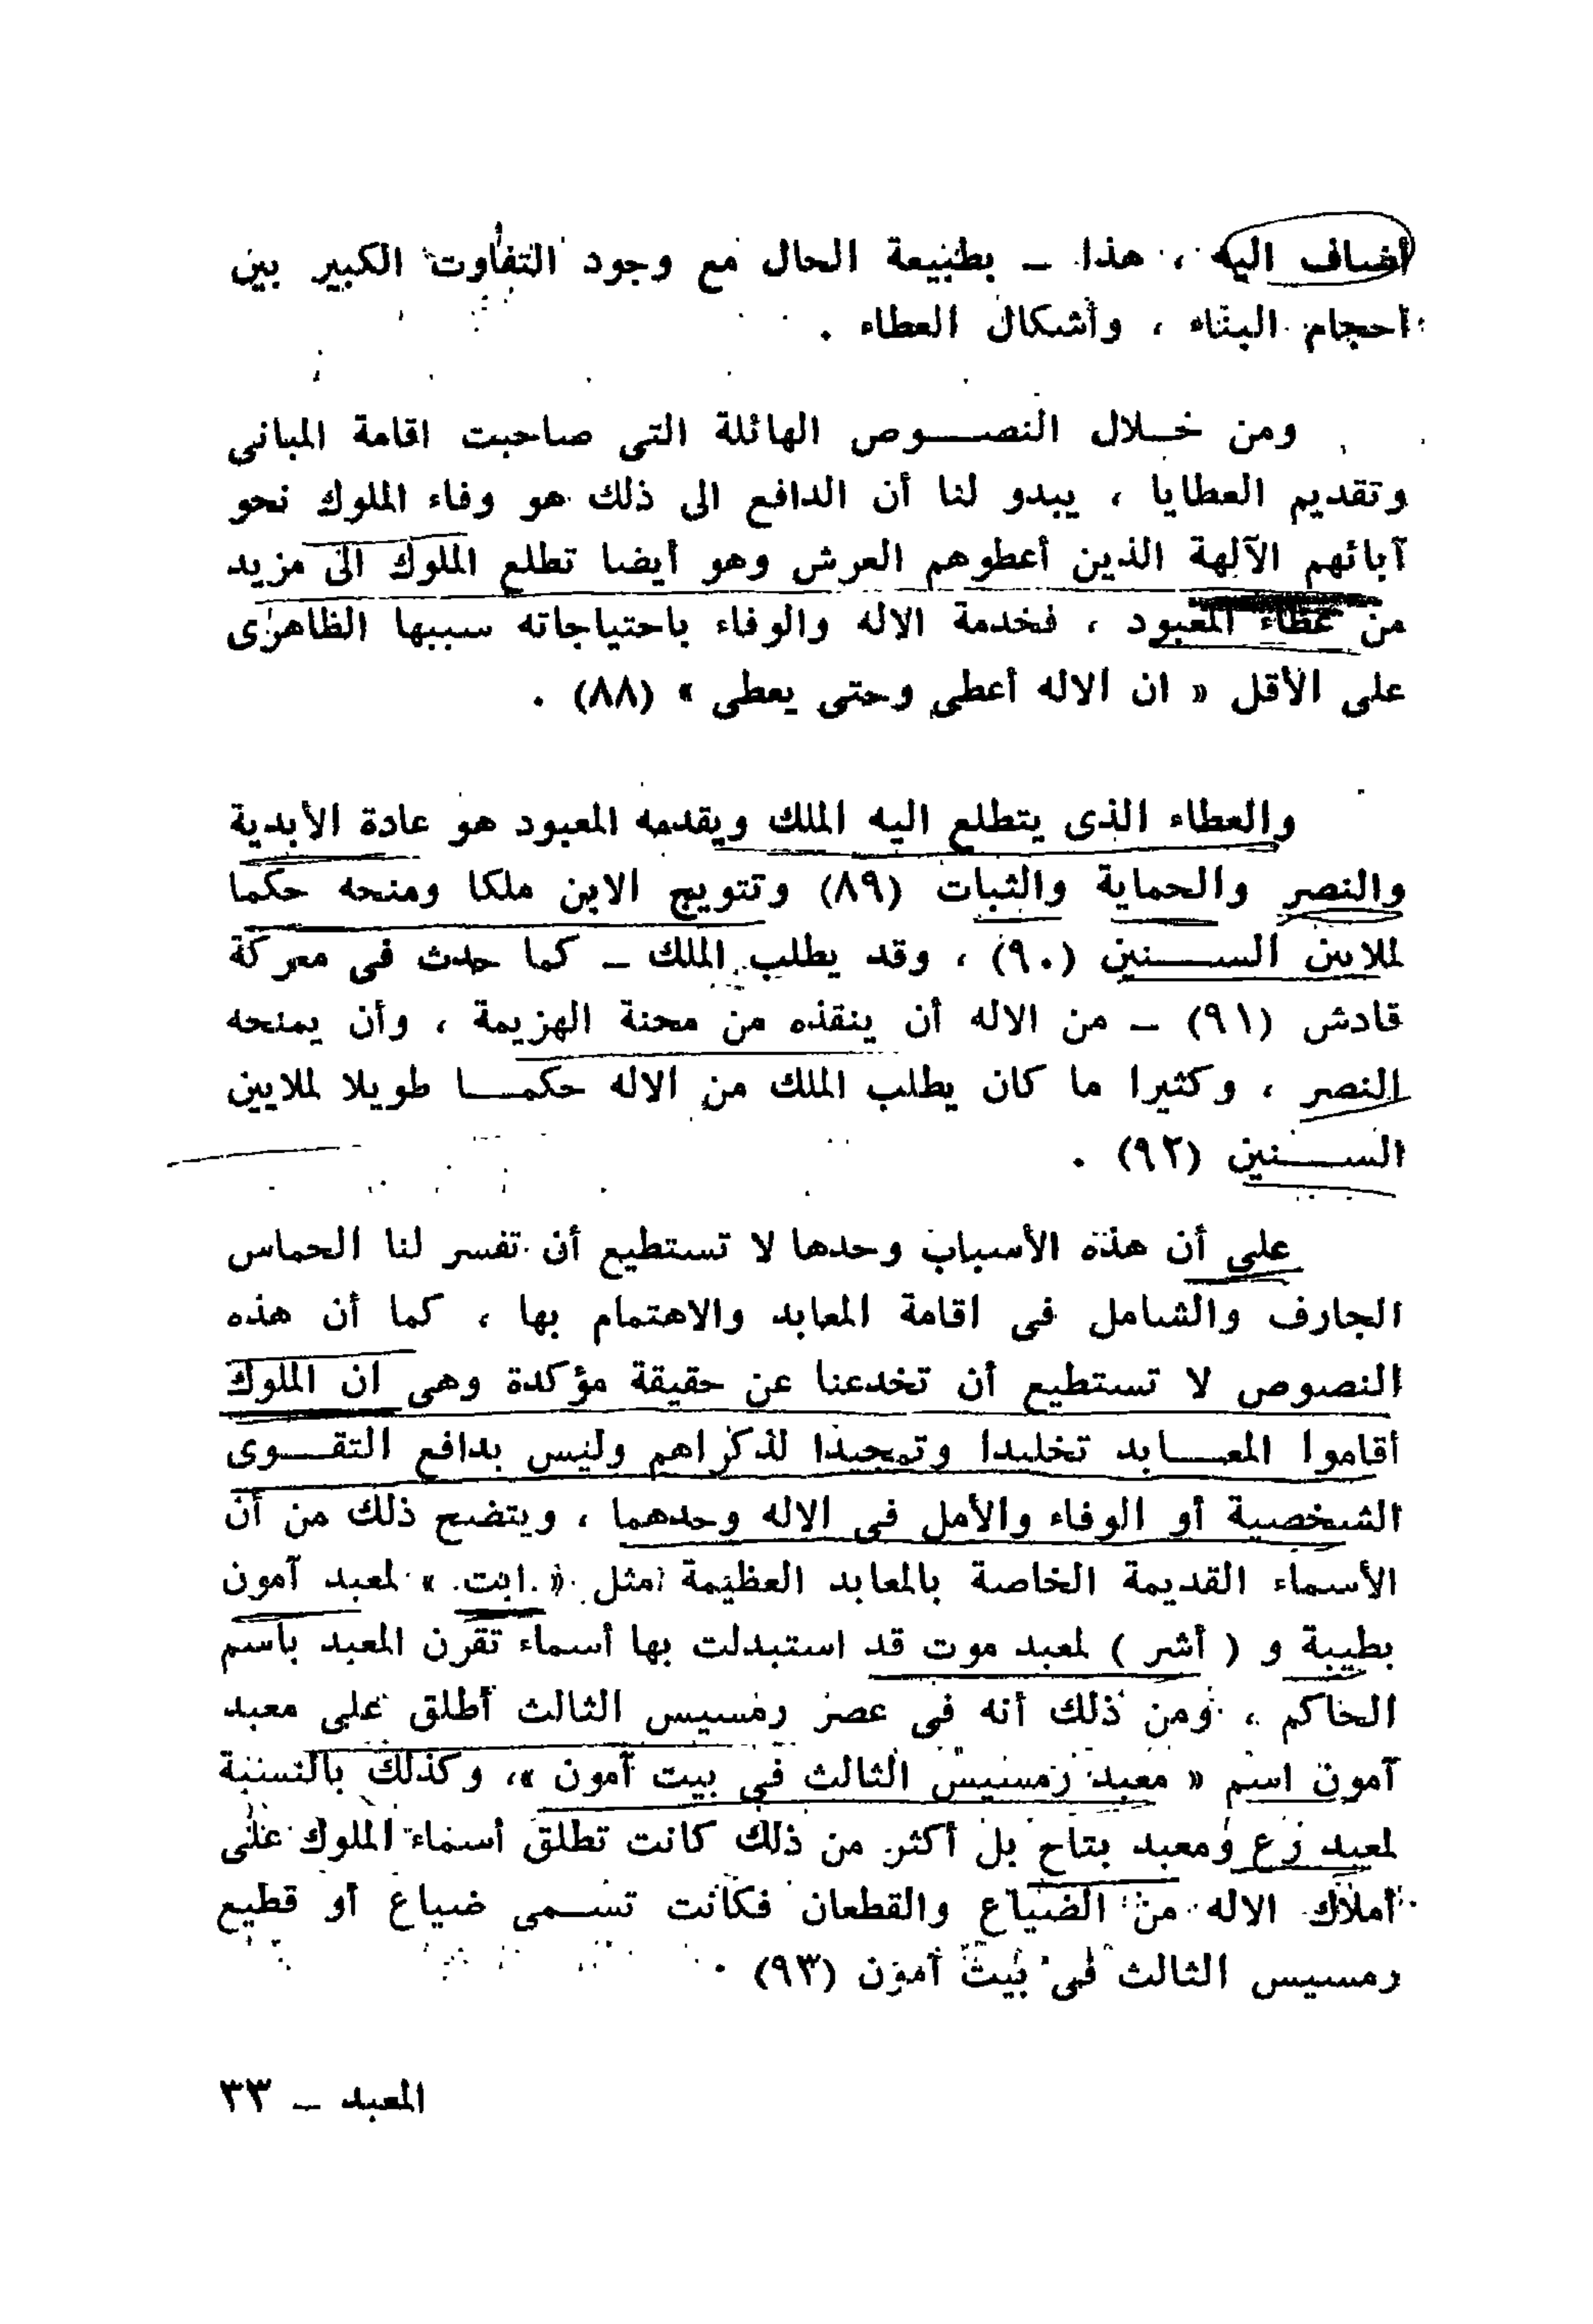 أضاف اليه ، هذا – بطبيعة الحال مع وجود التفاوت الكبير بين
أحجام البناء ، وأشكال العطاء .
ومن خلال النصوص الهائلة التى صاحبت اقامة المبانى
وتقديم العطايا ، يبدو لنا أن الدافع الى ذلك هو وفاء الملوك نحو
آبائهم الآلهة الذين أعطوهم العرش وهو أيضا تطلع الملوك الى مزيد
من عطاء المعبود ، فخدمة الاله والوفاء باحتياجاته سببها الظاهرى
على الأقل « ان الاله أعطى وحتى يعطى » (٨٨) .
والعطاء الذى يتطلع اليه الملك ويقدمه المعبود هو عادة الأبدية
والنصر والحماية والثبات (٨٩) وتتويج الابن ملكا ومنحه حكما
لملايين السنين (٩٠) ، وقد يطلب الملك – كما حدث فى معركة
قادش (٩١) – من الاله أن ينقذه من محنة الهزيمة ، وأن يمنحه
النصر ، وكثيرا ما كان يطلب الملك من الاله حكما طويلا لملايين
السنين (٩٢) .
على أن هذه الأسباب وحدها لا تستطيع أن تفسر لنا الحماس
الجارف والشامل فى اقامة المعابد والاهتمام بها ، كما أن هذه
النصوص لا تستطيع أن تخدعنا عن حقيقة مؤكدة وهى ان الملوك
أقاموا المعابد تخليدا وتمجيدا لذكراهم وليس بدافع التقوى
الشخصية أو الوفاء والأمل فى الاله وحدهما ، ويتضح ذلك من أن
الأسماء القديمة الخاصة بالمعابد العظيمة مثل « ابت » لمعبد آمون
بطيبة و ( أشر ) لمعبد موت قد استبدلت بها أسماء تقرن المعبد باسم
الحاكم ، ومن ذلك أنه فى عصر رمسيس الثالث أطلق على معبد
آمون اسم « معبد رمسيس الثالث فى بيت آمون »، وكذلك بالنسبة
لمعبد رع ومعبد بتاح بل أكثر من ذلك كانت تطلق أسماء الملوك على
أملاك الاله من الضياع والقطعان فكانت تسمى ضياع أو قطيع
رمسيس الثالث فى بيت أمون (٩٣) .
المعبد – ٣٣